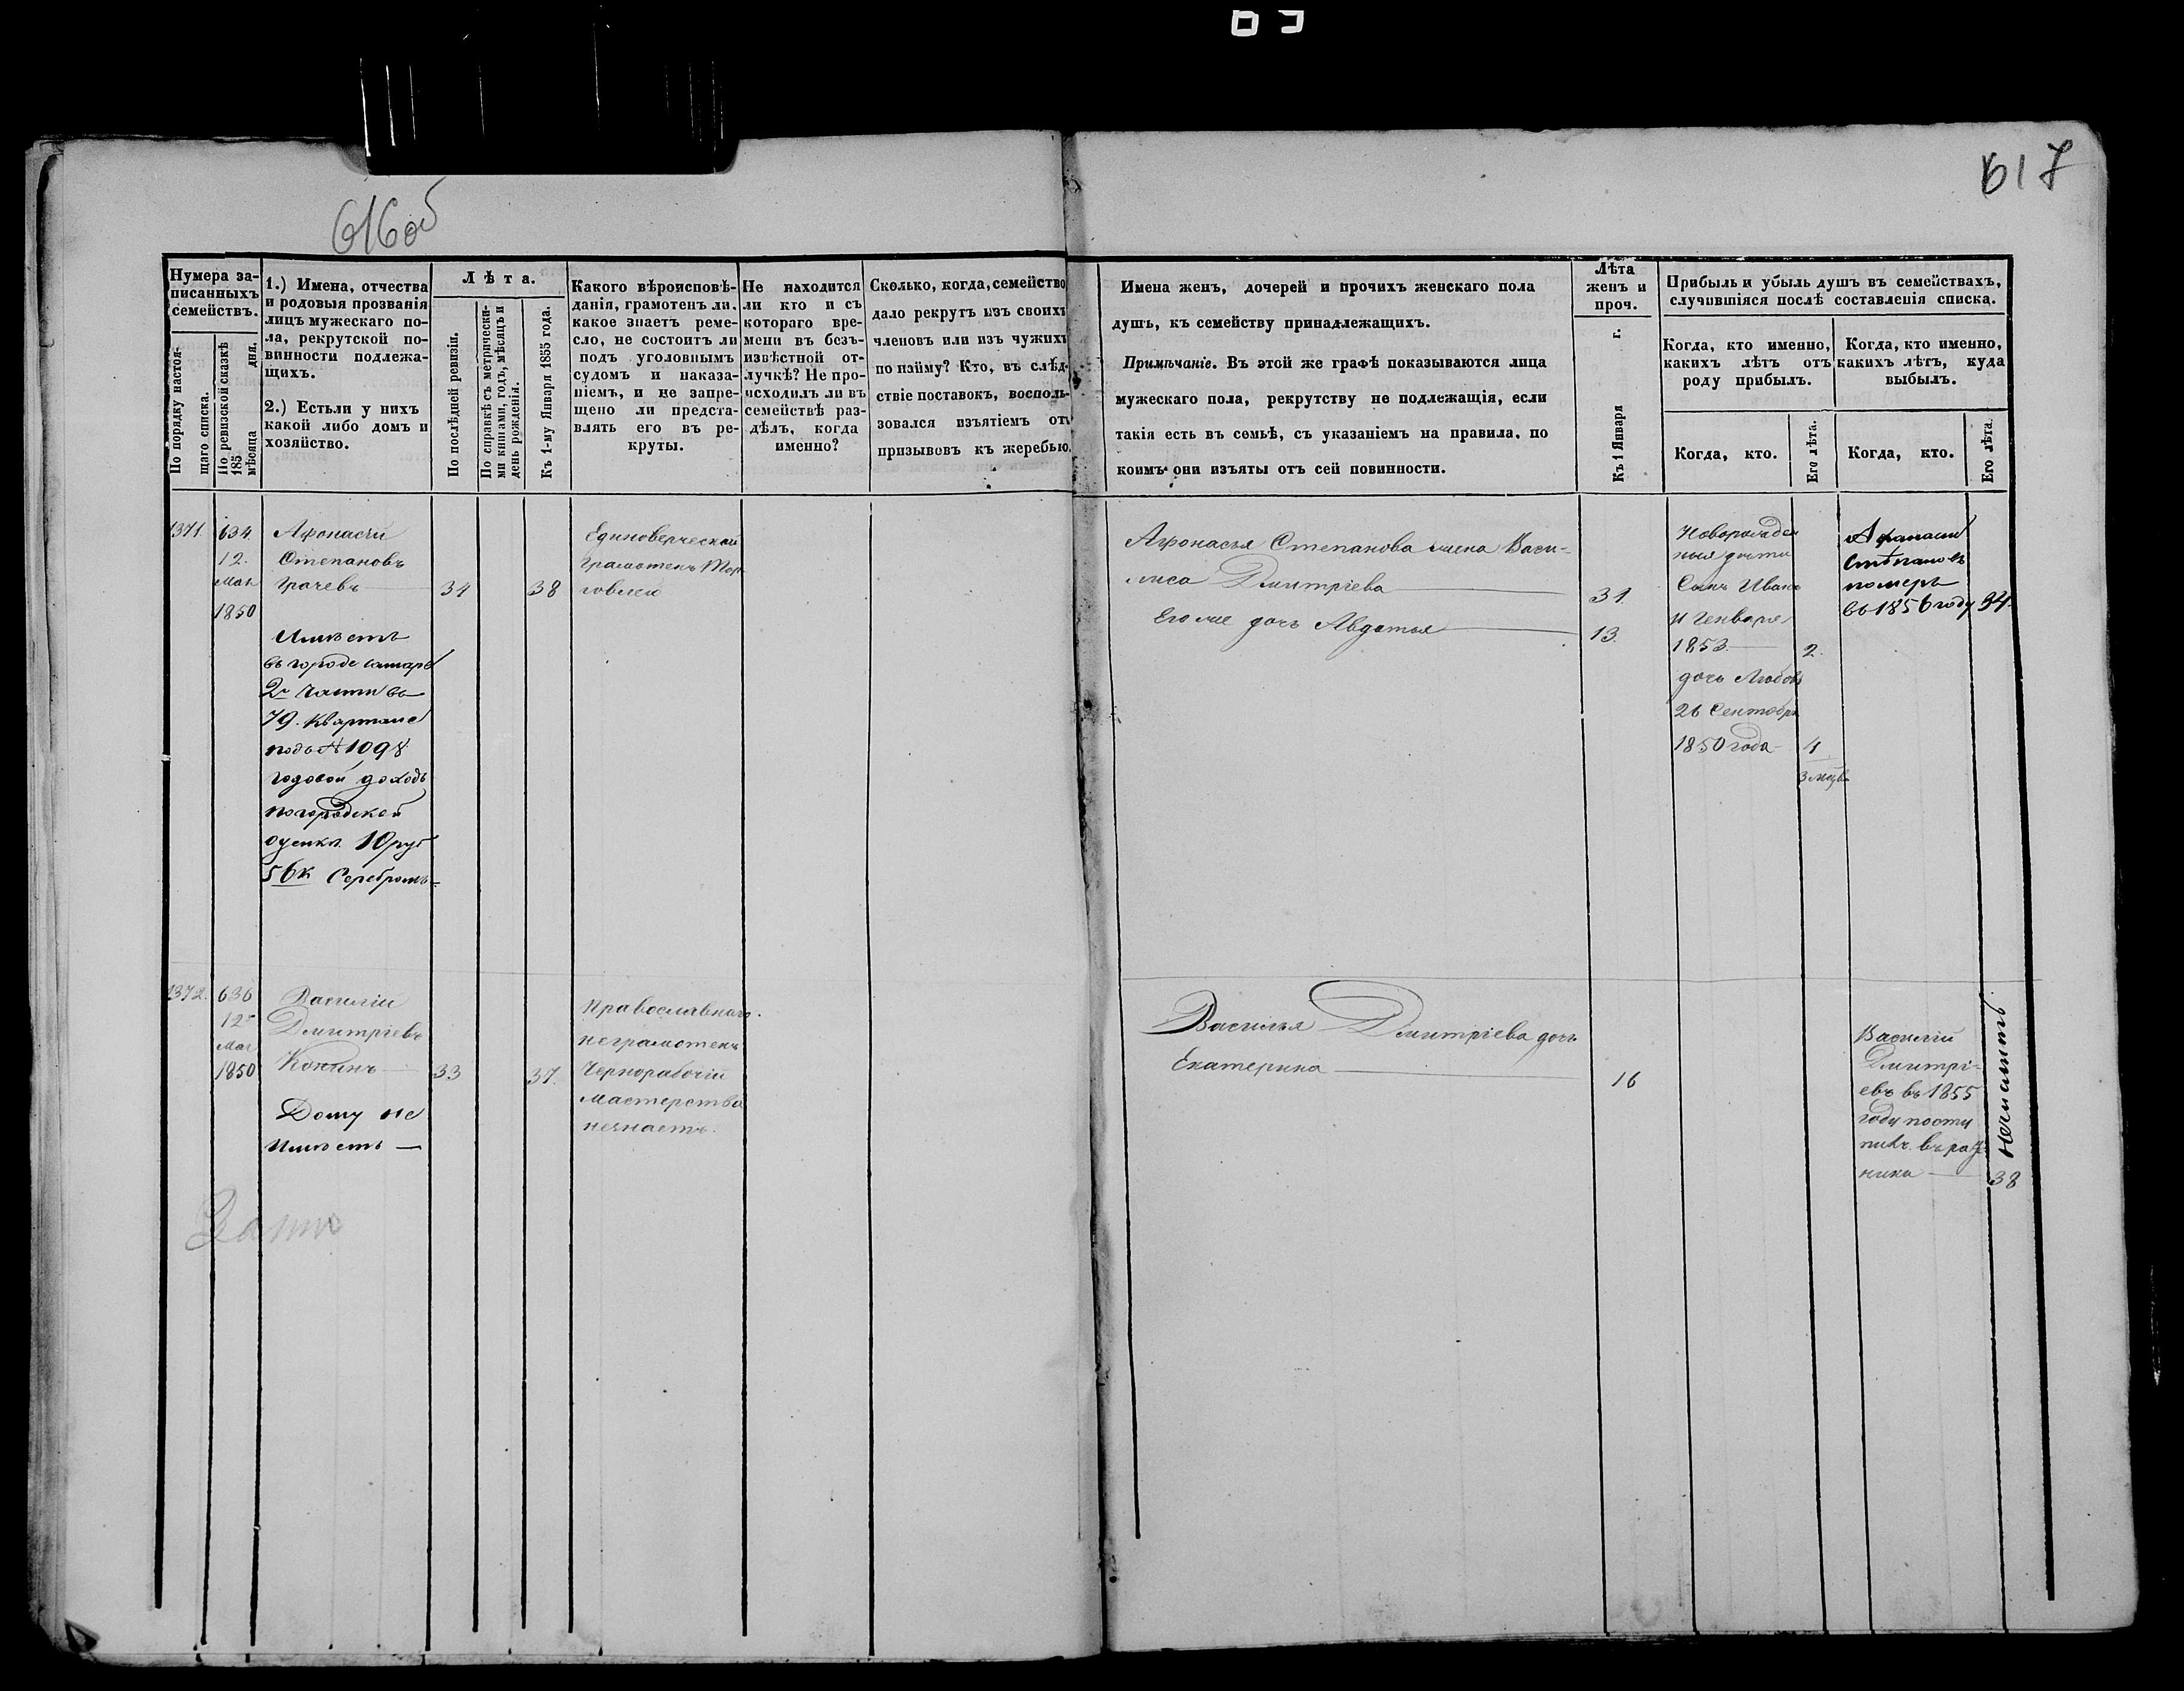 616об
617
Нумера за-
писанныхъ
семействъ.
По порядку настоя-
щаго списка.
По ревизской сказкѣ
185 дня.
мѣсяца
1.) Имена, отчества
и родовыя прозванія
лицъ мужескаго по-
ла, рекрутской по-
винности подлежа-
щихъ.
2.) Естьли у нихъ
какой либо домъ и
хозяйство.
Лѣта.
По послѣдней ревизіи.
По справкѣ съ метрически-
ми книгами, годъ, мѣсяцъ и
день рожденія.
Къ 1-му Января 1855 года.
Какого вѣроисповѣ-
данія, грамотенъ ли,
какое знаетъ реме-
сло, не состоитъ ли
подъ уголовнымъ
судомъ и наказа-
ніемъ, и не запре-
щено ли предста-
влять его въ ре-
круты.
Не находится
ли кто и съ
котораго вре-
мени въ безъ-
извѣстной от-
лучкѣ? Не про-
исходилъ ли въ
семействѣ раз-
дѣлъ, когда
именно?
Сколько, когда, семейство
дало рекрутъ изъ своихъ
членовъ или изъ чужихъ
по найму? Кто, въ слѣд-
ствіе поставокъ, восполь-
зовался изъятіемъ отъ
призывовъ къ жеребью.
Имена женъ, дочерей и прочихъ женскаго пола
душъ, къ семейству принадлежащихъ.
Примѣчаніе. Въ этой же графѣ показываются лица
мужескаго пола, рекрутству не подлежащія, если
такія есть въ семьѣ, съ указаніемъ на правила, по
коимъ они изъяты отъ сей повинности.
Лѣта
женъ и
проч.
Къ 1 Января г.
Прибыль и убыль душъ въ семействахъ,
случившіяся послѣ составленія списка.
Когда, кто именно,
какихъ лѣтъ отъ
роду прибылъ.
Когда, кто именно,
какихъ лѣтъ, куда
выбылъ.
Когда, кто.
Его лѣта.
Когда, кто.
Его лѣта.
1371.
634
12.
мая
1850
Афонасій
Степановъ
Грачевъ
34
38
Имѣетъ
въ городе самаре
2й части въ
79. квартале
подъ № 1098
годовой доходъ
по городской
оценкѣ 10 руб
56 к Серебромъ
Единоверческой
Грамотенъ Тор-
говлею
Афонасья Степанова жена Васи-
лиса Дмитріева
31.
Его же дочь Авдотья
13.
Новорожден
ныя дети
Сынъ Иванъ
11 Генваря
1853.
2.
дочь Любовь
26 Сентября
1850 года
4
3 мцв
Афанасій
Степановъ
померъ
въ 1856 году 34.
1372.
636
12
мая
1850
Василій
Дмитріевъ
Кокинъ
33
37.
Дому не
имѣетъ
Православнаго.
неграмотенъ
Чернорабочій
мастерства
незнаетъ.
Василья Дмитріева дочь
Екатерина
16
Василій
Дмитрі-
евъ въ 1855
году посту
пилъ въ рат-
ника
38